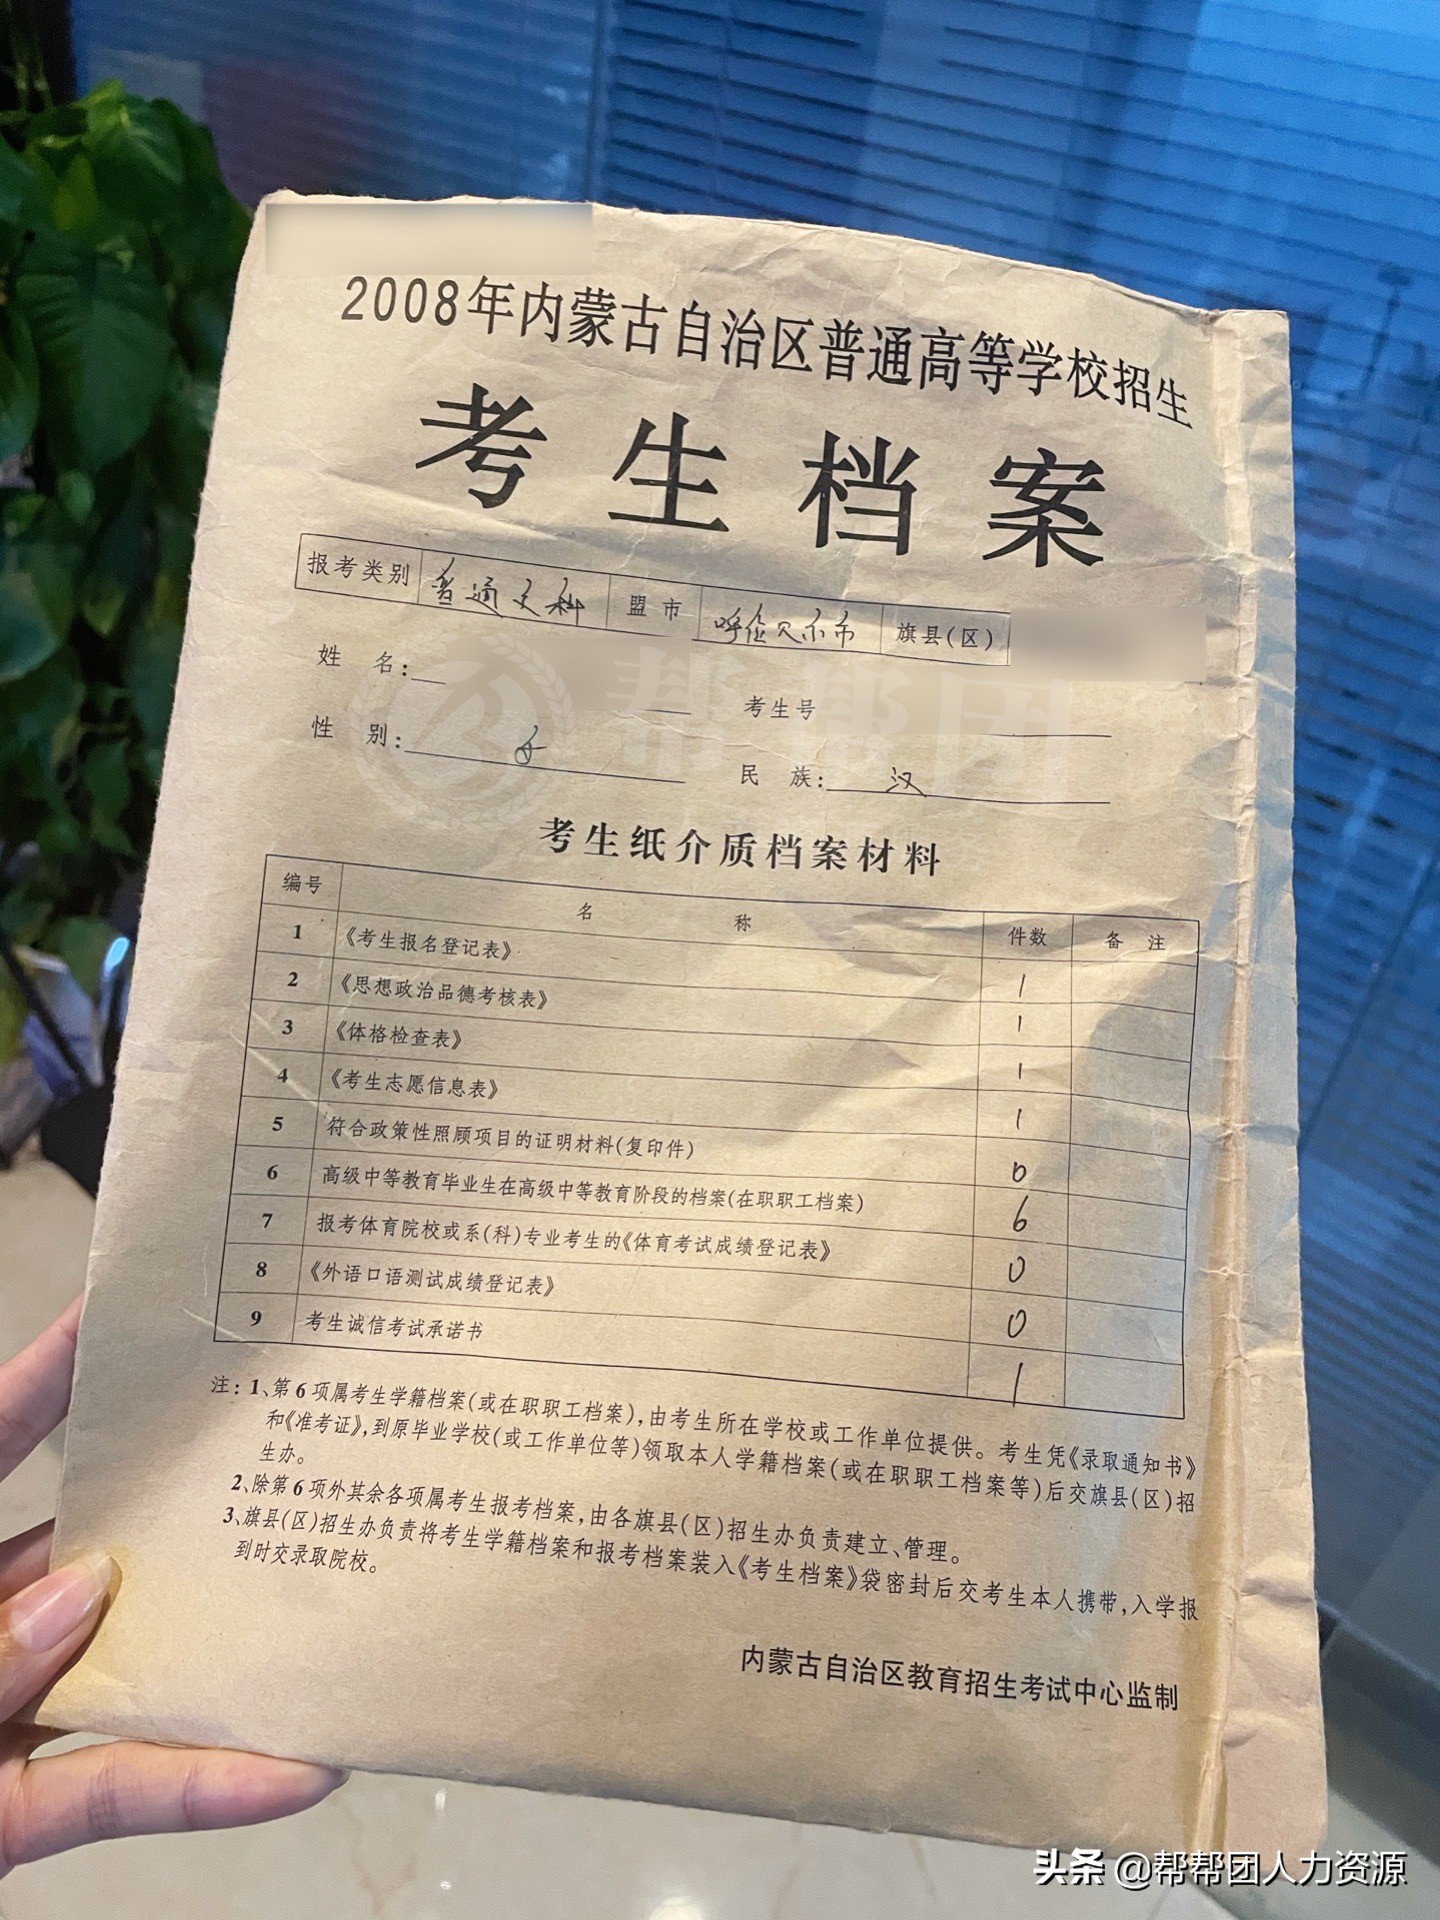 2008年内蒙古自治区普通高等学校招生
考生档案
报考类别 普通文科 盟市 呼伦贝尔市 旗县(区)
姓 名:
考生号
性 别: 女
民 族: 汉
帮帮团
考生纸介质档案材料
编号 名 称 件数 备 注
1 《考生报名登记表》 1
2 《思想政治品德考核表》 1
3 《体格检查表》 1
4 《考生志愿信息表》 1
5 符合政策性照顾项目的证明材料(复印件) 0
6 高级中等教育毕业生在高级中等教育阶段的档案(在职职工档案) 6
7 报考体育院校或系(科)专业考生的《体育考试成绩登记表》 0
8 《外语口语测试成绩登记表》 0
9 考生诚信考试承诺书 1
注:1、第6项属考生学籍档案(或在职职工档案),由考生所在学校或工作单位提供。考生凭《录取通知书》
和《准考证》,到原毕业学校(或工作单位等)领取本人学籍档案(或在职职工档案等)后交旗县(区)招
生办。
2、除第6项外其余各项属考生报考档案,由各旗县(区)招生办负责建立、管理。
3、旗县(区)招生办负责将考生学籍档案和报考档案装入《考生档案》袋密封后交考生本人携带,入学报
到时交录取院校。
内蒙古自治区教育招生考试中心监制
头条 @帮帮团人力资源